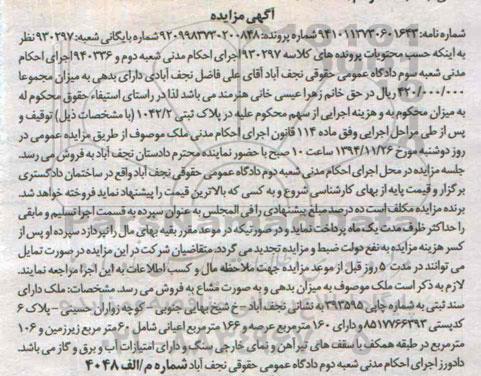 آگهی مزایده
شماره نامه: ۹۴۱۰۱۱۳۷۳۰۶۰۱۶۴۳ شماره پرونده: ۹۲۰۹۹۸۳۷۳۰۲۰۰۸۴۸ شماره بایگانی شعبه: ۹۳۰۲۹۷ نظر
به اینکه حسب محتویات پرونده های کلاسه ۹۳۰۲۹۷ اجرای احکام مدنی شعبه دوم و ۹۴۰۳۳۶ اجرای احکام
مدنی شعبه سوم دادگاه عمومی حقوقی نجف آباد آقای علی فاضل نجف آبادی دارای بدهی به میزان مجموعا
۴۲۰/۰۰۰/۰۰۰ ریال در حق خانم زهرا عیسی خانی هنرمند می باشد لذا در راستای استیفاء حقوق محکوم له
به میزان محکوم به و هزینه اجرایی از سهم محکوم علیه در پلاک ثبتی ۱۰۴۲/۲ (با مشخصات ذیل) توقیف و
پس از طی مراحل اجرایی وفق ماده ۱۱۴ قانون اجرای احکام مدنی ملک موصوف از طریق مزایده عمومی در
روز دوشنبه مورخ ۱۳۹۴/۱۱/۲۶ ساعت ۱۰ صبح با حضور نماینده محترم دادستان نجف آباد به فروش می رسد.
جلسه مزایده در محل اجرای احکام مدنی شعبه دوم دادگاه عمومی حقوقی نجف آباد واقع در ساختمان دادگستری
برگزار و قیمت پایه از بهای کارشناسی شروع و به کسی که بالاترین قیمت را پیشنهاد نماید فروخته خواهد شد.
برنده مزایده مکلف است ده درصد مبلغ پیشنهادی را فی المجلس به عنوان سپرده به قسمت اجرا تسلیم و مابقی
را حداکثر ظرف مدت یک ماه پرداخت نماید و در صورتیکه در موعد مقرر بقیه بهای مال را نپردازد سپرده او پس از
کسر هزینه مزایده به نفع دولت ضبط و مزایده تجدید می گردد. متقاضیان شرکت در این مزایده در صورت تمایل
می توانند در مدت ۵ روز قبل از موعد مزایده جهت ملاحظه مال و کسب اطلاعات به این اجرا مراجعه نمایند.
لازم به ذکر است ملک موصوف به میزان بدهی و به صورت مشاع به فروش می رسد. مشخصات: ملک دارای
سند ثبتی به شماره چاپی ۳۹۳۵۹۵ به نشانی نجف آباد - خ شیخ بهایی جنوبی - کوچه زواران حسینی - پلاک ۶
کدپستی ۸۵۱۷۷۶۶۳۹۳ و دارای ۱۶۰ مترمربع عرصه و ۱۶۶ مترمربع اعیانی شامل ۶۰ متر مربع زیرزمین و ۱۰۶
مترمربع در طبقه همکف با سقف های تیرآهن و نمای خارجی سنگ و دارای امتیازات آب و برق و گاز می باشد.
دادورز اجرای احکام مدنی شعبه دوم دادگاه عمومی حقوقی نجف آباد شماره م/الف ۴۰۴۸